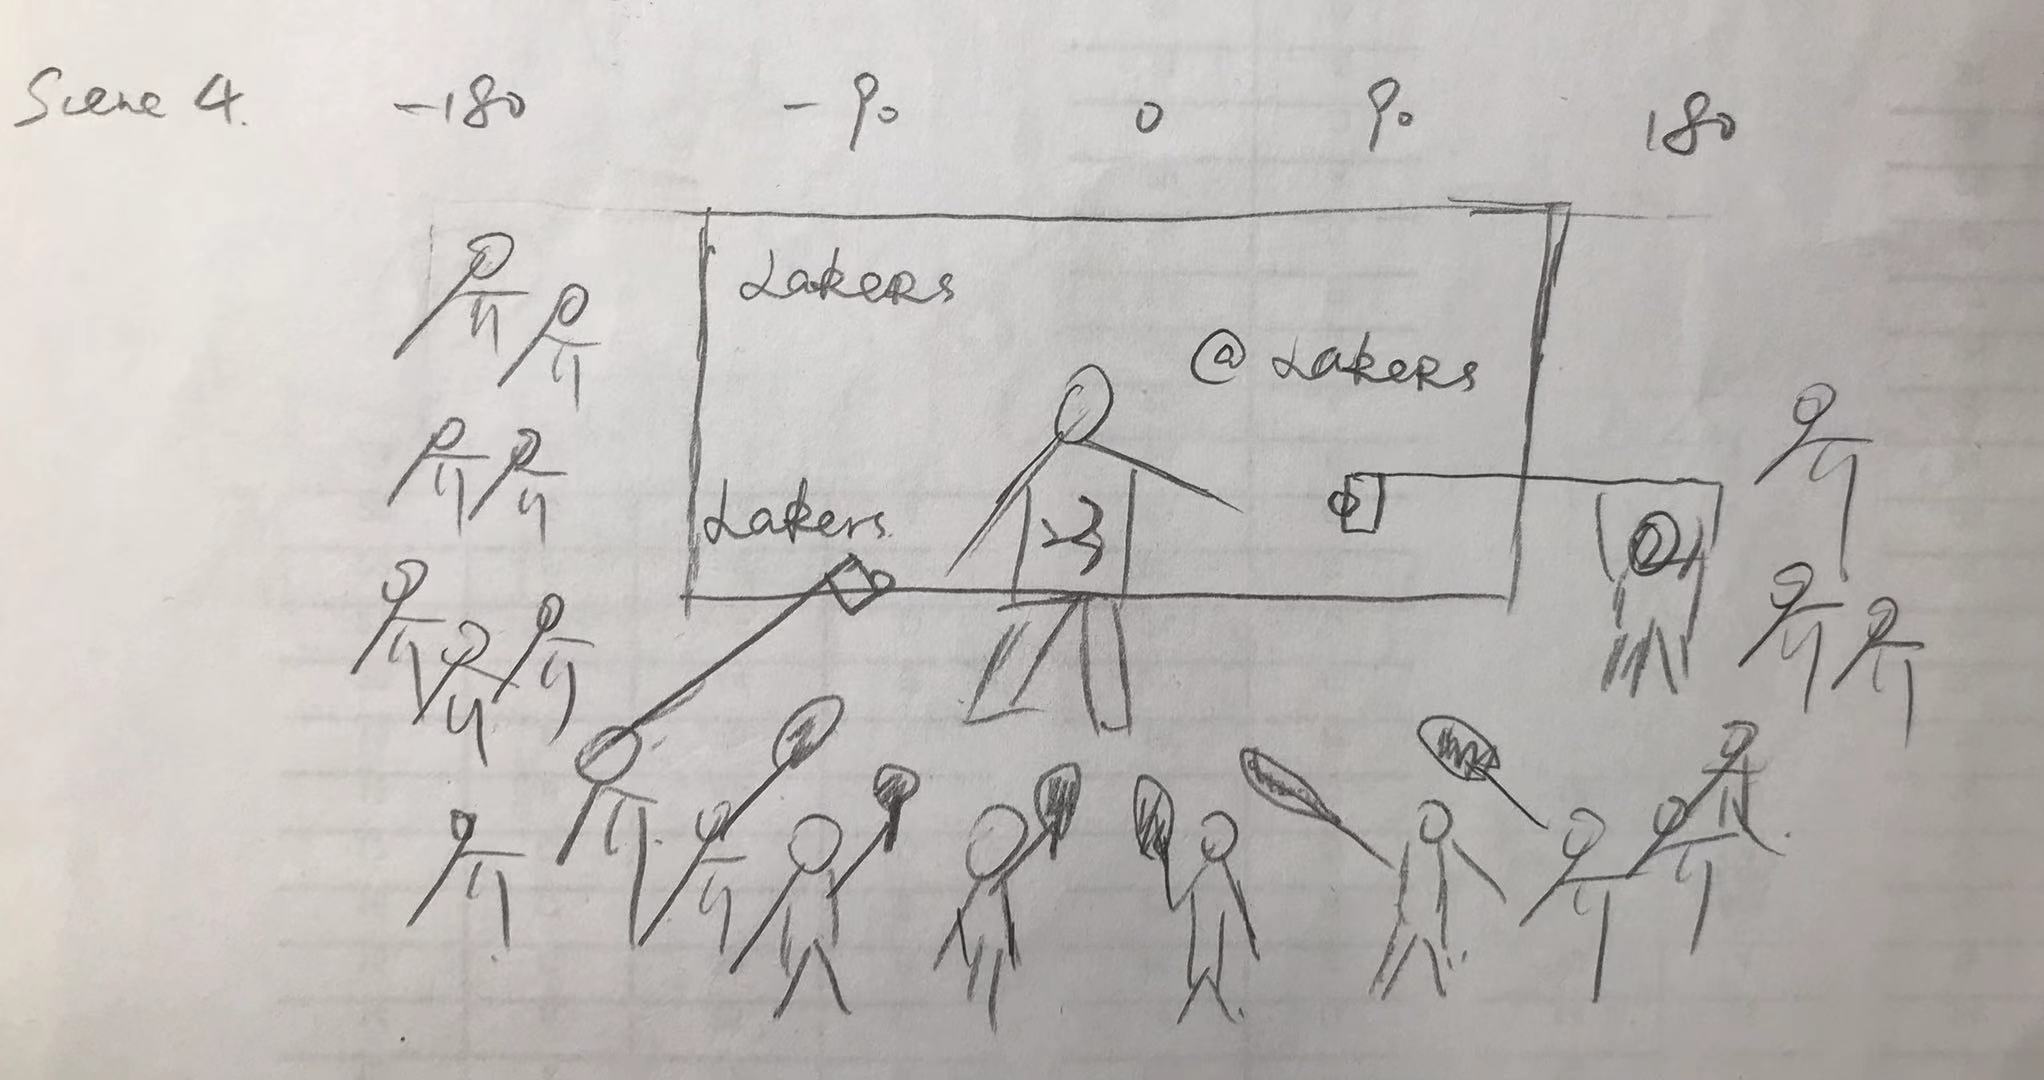 Scene 4. -180 -90 0 90 180
Lakers
@ Lakers
Lakers
23